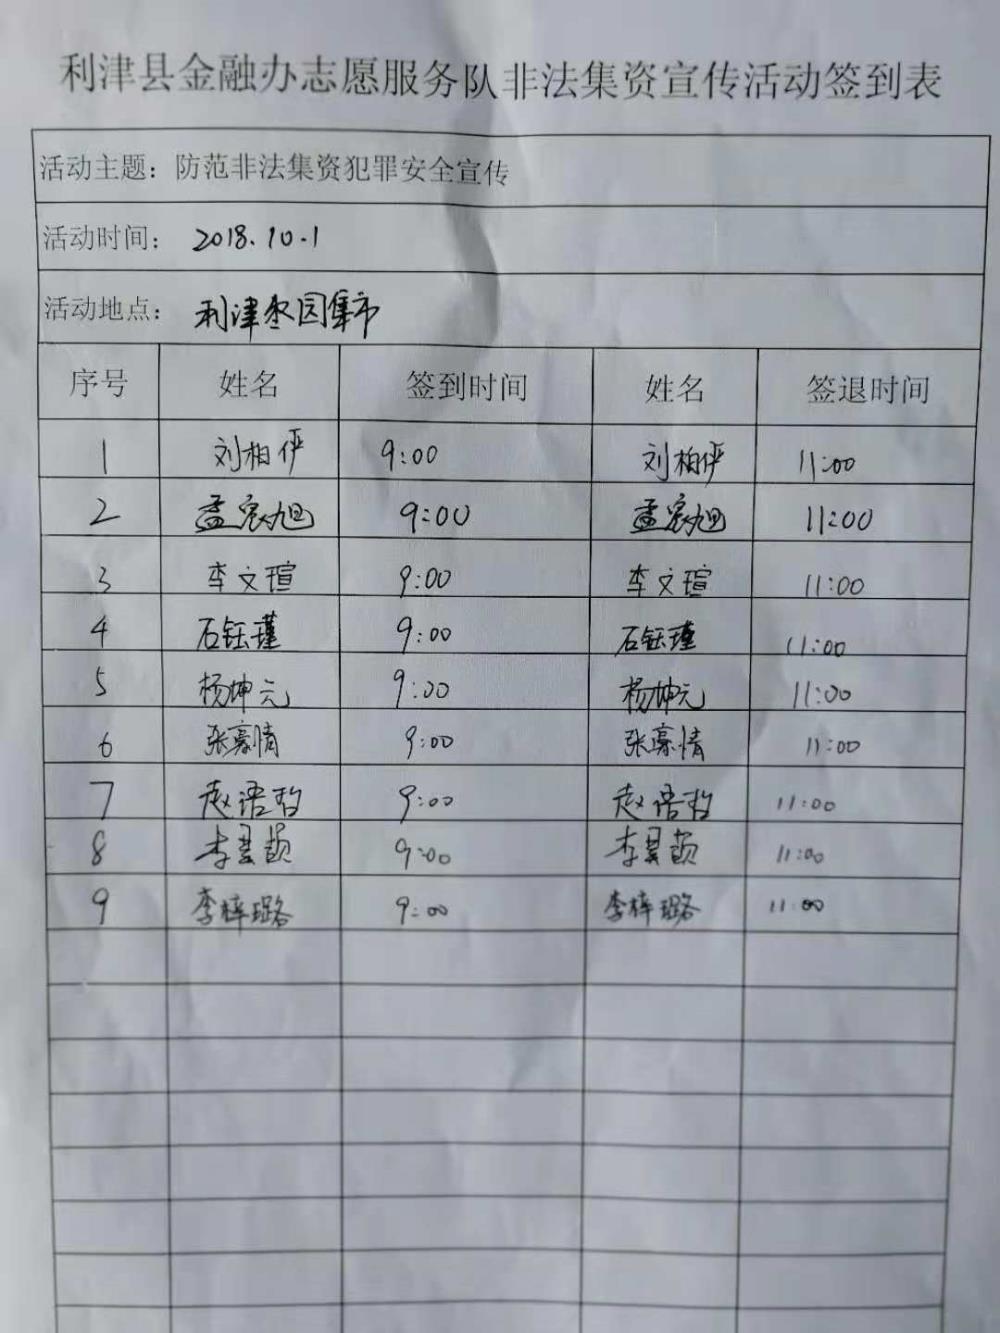 利津县金融办志愿服务队非法集资宣传活动签到表
活动主题：防范非法集资犯罪安全宣传
活动时间： 2018.10.1
活动地点： 利津枣园集市
序号 姓名 签到时间 姓名 签退时间
1 刘柏俨 9:00 刘柏俨 11:00
2 孟宸旭 9:00 孟宸旭 11:00
3 李文瑄 9:00 李文瑄 11:00
4 石钰瑾 9:00 石钰瑾 11:00
5 杨坤元 9:00 杨坤元 11:00
6 张豪情 9:00 张豪情 11:00
7 赵语 9:00 赵语 11:00
8 李昊颉 9:00 李昊颉 11:00
9 李梓璐 9:00 李梓璐 11:00